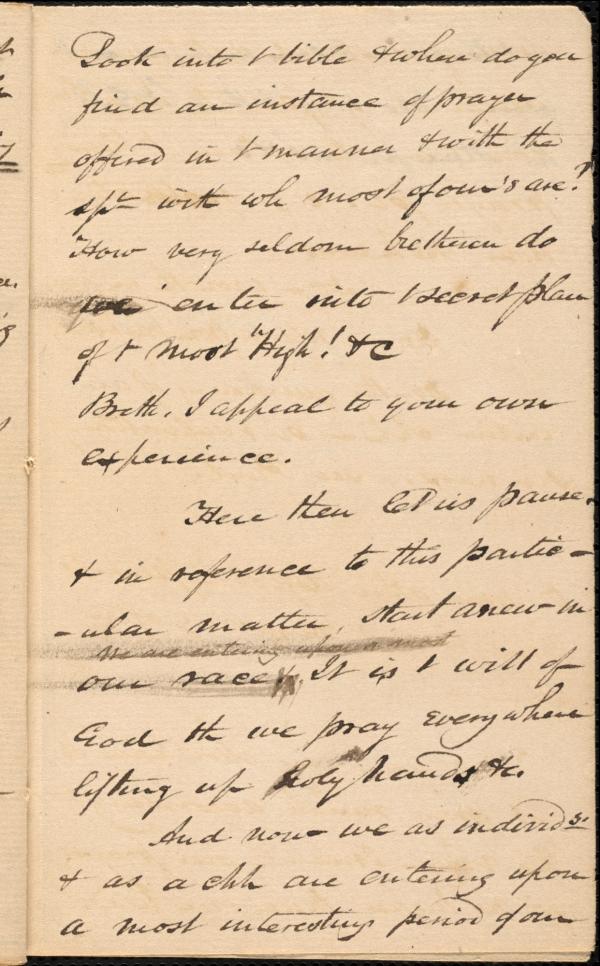 Look into t bible & where do you
find an instance of prayer
offered in t manner & with the
spt with wh most of our's are?
How very seldom bretheren do
we enter into t secret place
of t most "High"! &c
Breth. I appeal to your own
experience.
Here then let us pause.
& in reference to this partic-
-ular matter, start anew in
We are entering upon a most
our race. It is t will of
God th we pray everywhere
lifting up holy hands &c.
And now we as individs.
& as a chh are entering upon
a most interesting period of our